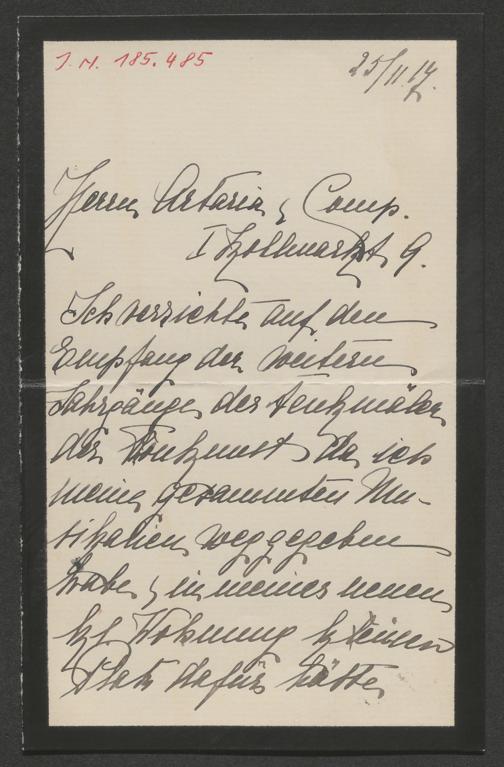 I. N. 185.485
25/11 17.
Herrn Artaria & Comp.
I Kohlmarkt 9.
Ich verzichte auf den
Empfang der weitern
Jahrgänge der Denkmäler
der Tonkunst da ich
meine gesammten Mu-
sikalien weggegeben
habe & in meiner neuen
kl. Wohnung keinen
Platz dafür hätte